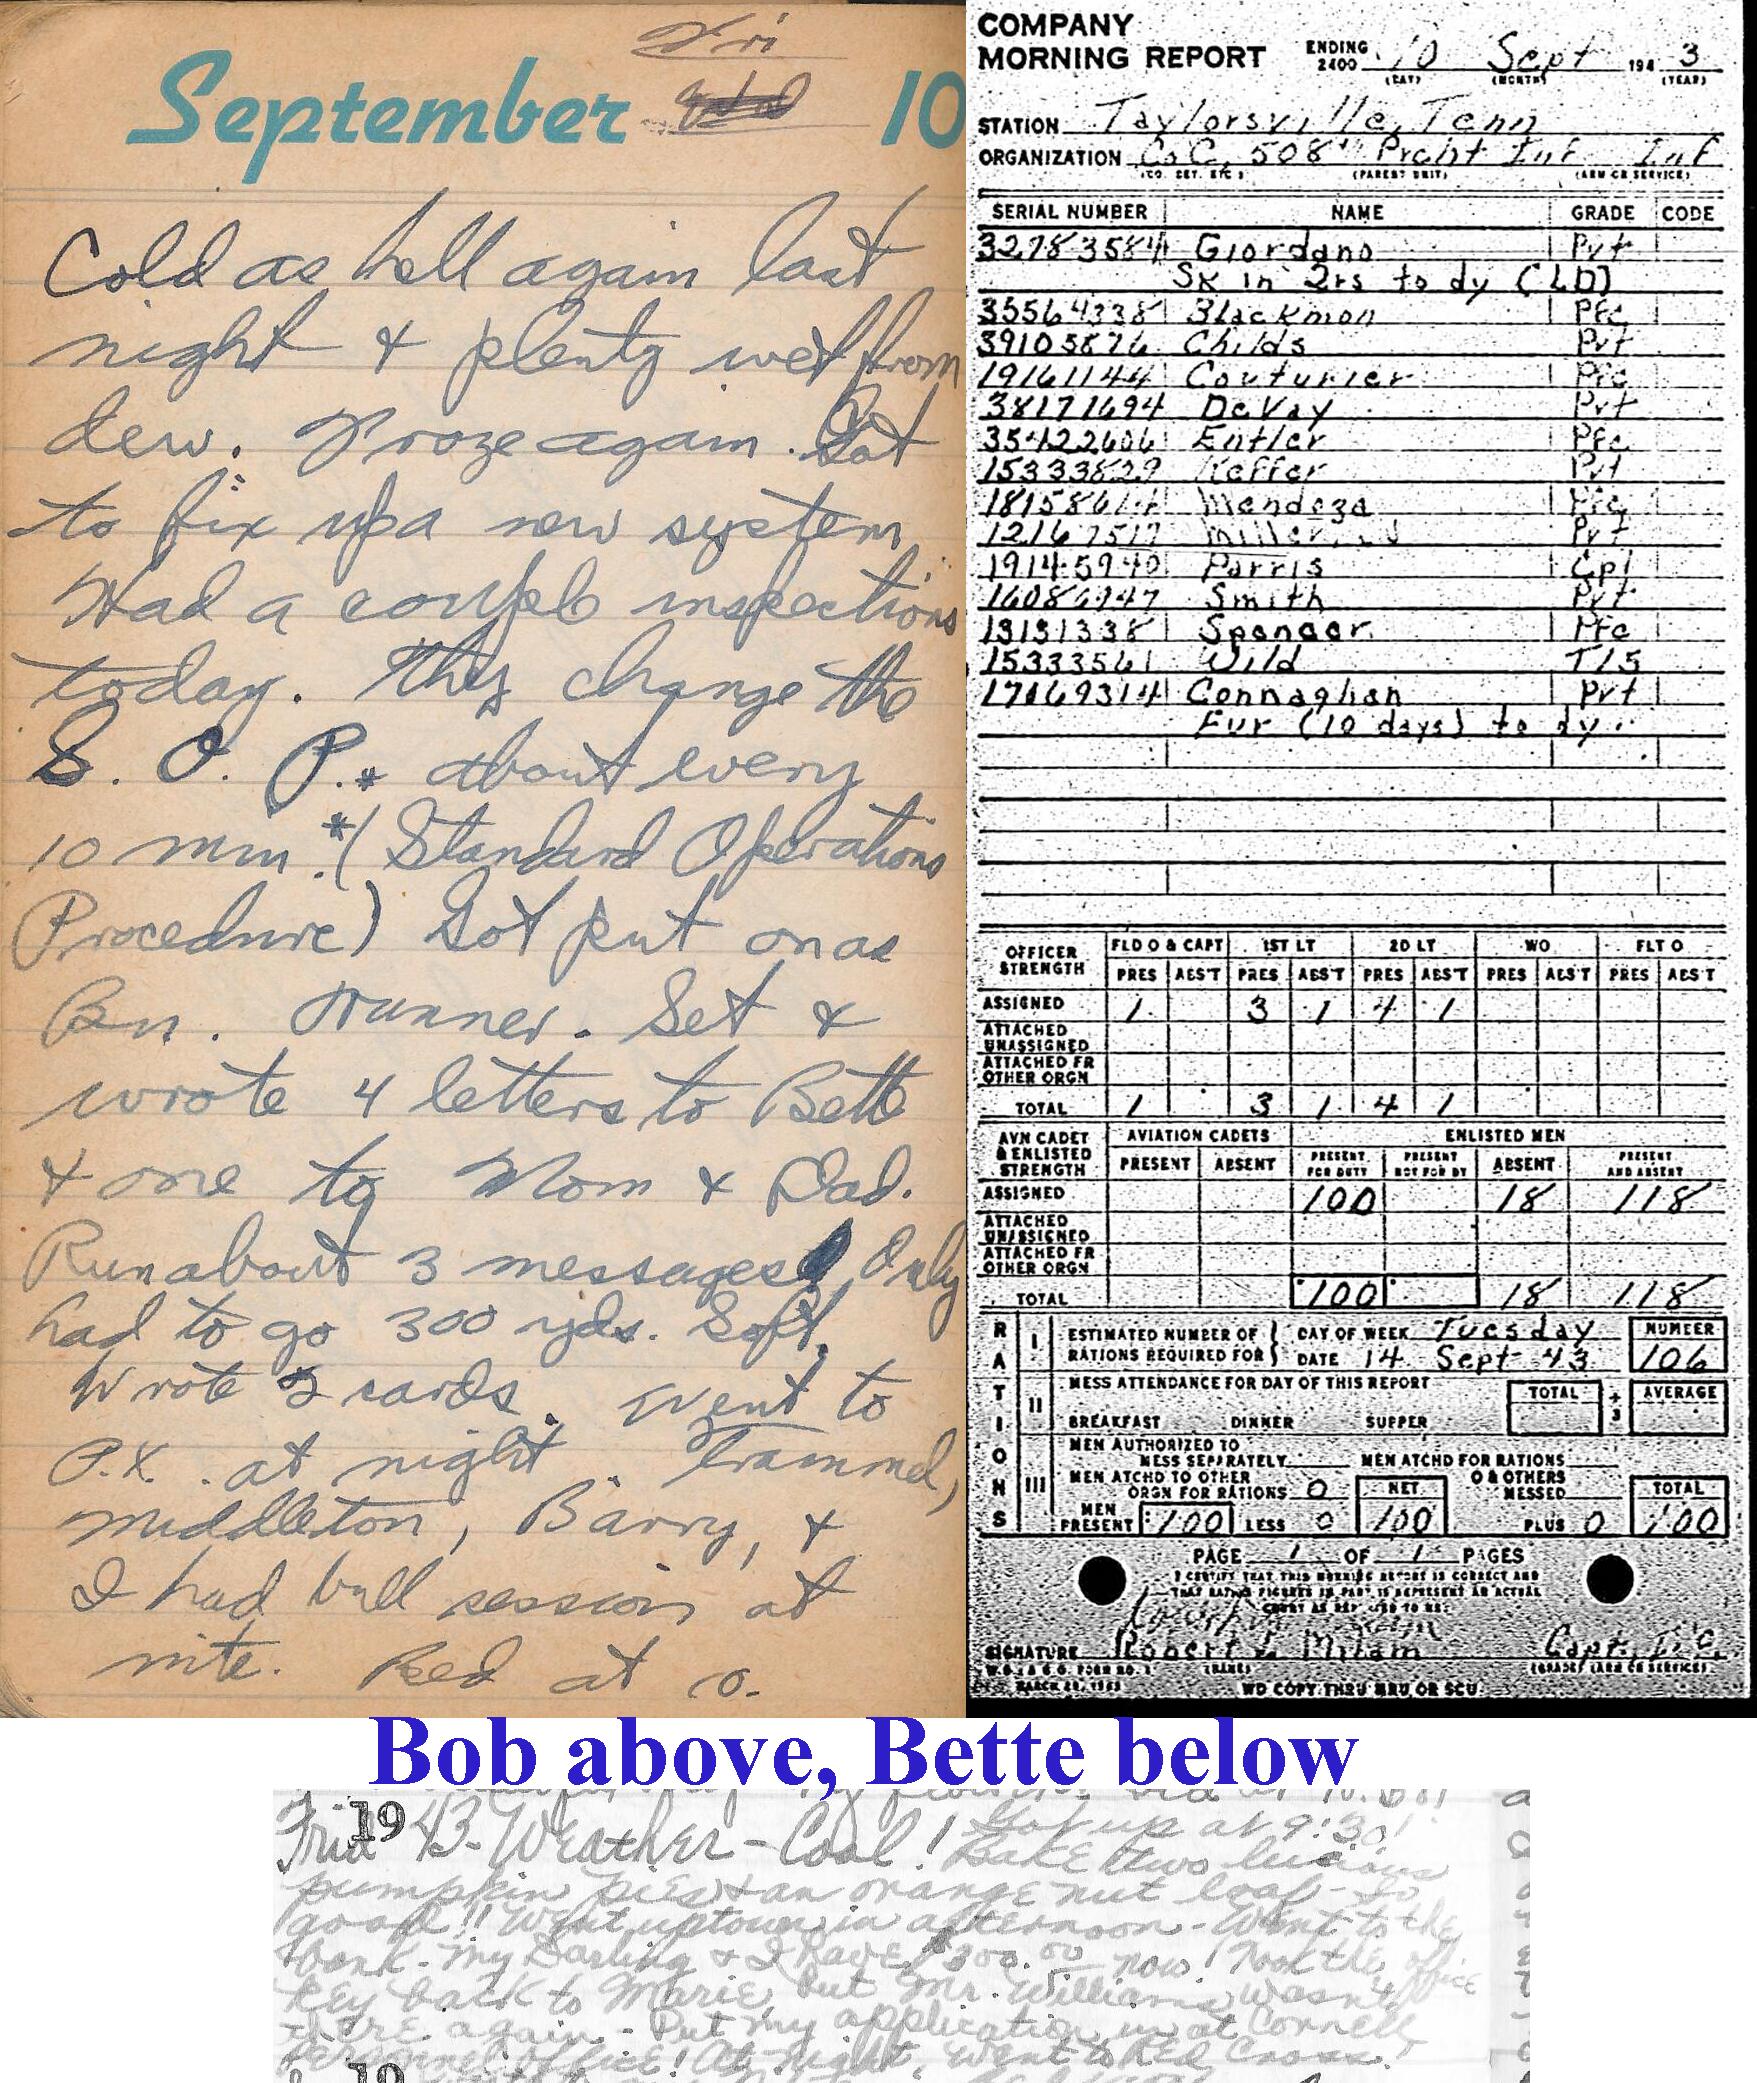 Fri
September 10
Cold as hell again last
night & plenty wet from
dew. Froze again. Got
to fix up a new system
Had a couple inspections
today. They change the
S. O. P.* about every
10 min. *(Standard Operations
Procedure) Got put on as
Bn. runner. Set &
wrote 4 letters to Bette
& one to Mom & Dad.
Run about 3 messages Only
had to go 300 yds. Soft.
Wrote cards. Went to
P.X. at night. Trammel,
Middleton, Barry, &
I had bull session at
nite. Bed at 10.
COMPANY
MORNING REPORT ENDING 2400 10 Sept 194 3
(DAY) (MONTH) (YEAR)
STATION Taylorsville, Tenn
ORGANIZATION Co C, 508th Prcht Inf Inf
(CO. DET. ETC.) (PARENT UNIT) (ARM OR SERVICE)
SERIAL NUMBER NAME GRADE CODE
32783584 Giordano Pvt
Sk in Qrs to dy (LD)
35564338 Blackmon Pfc
39105876 Childs Pvt
19161144 Couturier Pfc
38171694 DeVay Pvt
35422606 Entler Pfc
15333829 Keffer Pvt
Mendoza Pfc
Miller Pvt
19145940 Parris Cpl
16086947 Smith Pvt
13131338 Spencer Pfc
15333561 Wild T/5
17069314 Connaghan Pvt
Fur (10 days) to dy
OFFICER STRENGTH FLD O & CAPT 1ST LT 2D LT WO FLT O
PRES ABS'T PRES ABS'T PRES ABS'T PRES ABS'T PRES ABS'T
ASSIGNED 1 3 1 4 1
ATTACHED UNASSIGNED
ATTACHED FR OTHER ORGN
TOTAL 1 3 1 4 1
AVN CADET & ENLISTED STRENGTH AVIATION CADETS ENLISTED MEN
PRESENT ABSENT PRESENT FOR DUTY PRESENT NOT FOR DY ABSENT PRESENT AND ABSENT
ASSIGNED 100 18 118
ATTACHED UNASSIGNED
ATTACHED FR OTHER ORGN
TOTAL 100 18 118
RATIONS
I ESTIMATED NUMBER OF RATIONS REQUIRED FOR DAY OF WEEK Tuesday NUMBER
DATE 14 Sept 43 106
II MESS ATTENDANCE FOR DAY OF THIS REPORT TOTAL ÷ 3 AVERAGE
BREAKFAST DINNER SUPPER
III MEN AUTHORIZED TO MESS SEPARATELY MEN ATCHD FOR RATIONS
MEN ATCHD TO OTHER ORGN FOR RATIONS 0 NET O & OTHERS MESSED TOTAL
MEN PRESENT 100 LESS 0 100 PLUS 0 100
PAGE 1 OF 1 PAGES
I CERTIFY THAT THIS MORNING REPORT IS CORRECT AND
THAT RATION FIGURES IN PART III REPRESENT AN ACTUAL
COUNT AS REPORTED TO ME:
SIGNATURE Robert L Milam Capt.
(NAME) (GRADE) (ARM OR SERVICE)
WD COPY THRU MRU OR SCU
Bob above, Bette below
19
Fri. 43-Weather-Cool! Got up at 9:30!
Bake two luscious
pumpkin pies & an orange nut loaf - So
good!! Went uptown in afternoon - Went to the
bank - My Darling & I have $300.00 now! Took the office
key back to Marie, but Mr. Williams wasn't
there again - Put my application in at Cornell
Personnel Office! At night, went to Red Cross!
19